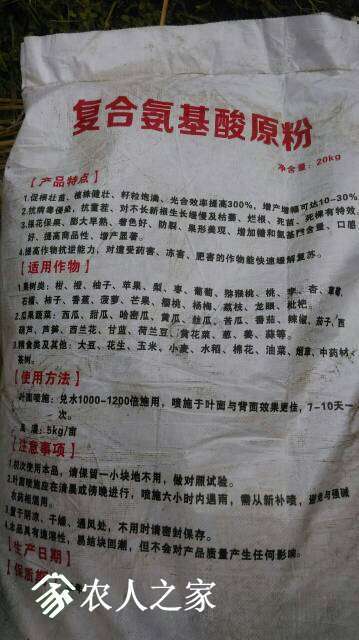 复合氨基酸原粉
净含量：20kg
【产品特点】
1.促根壮苗，植株健壮、籽粒饱满、光合效率提高300%，增产增幅可达10-30%
2.抗病毒侵染，抗重茬、对不长新根生长缓慢及枯萎、烂根、死苗、死棵有特效
3.强花保果、膨大早熟、着色好、防裂、果形美观、增加糖和氨基酸含量、口感
好、提高商品性，增产显著。
4.提高作物抗逆能力，对遭受药害、冻害、肥害的作物能快速缓解复苏。
【适用作物】
1.果树类：柑、橙、柚子、苹果、梨、枣、葡萄、猕猴桃、桃、李、杏、草莓、
石榴、柿子、香蕉、菠萝、芒果、樱桃、杨梅、荔枝、龙眼、枇杷。
2.瓜果蔬菜：西瓜、甜瓜、哈密瓜、黄瓜、丝瓜、苦瓜、番茄、辣椒、茄子、西
葫芦、芦笋、西兰花、甘蓝、荷兰豆、黄花菜、葱、姜、蒜等。
3.粮食类及其他：大豆、花生、玉米、小麦、水稻、棉花、油菜、烟草、中药材、
茶树。
【使用方法】
叶面喷施：兑水1000-1200倍施用，喷施于叶面与背面效果更佳，7-10天一
次。
5kg/亩
【注意事项】
1.初次使用本品，请保留一小块地不用，做对照试验。
2.叶面喷施应在清晨或傍晚进行，喷施六小时内遇雨，需从新补喷，避免与强碱
农药混用。
3.置于阴凉、干燥、通风处，不用时请密封保存。
4.本品具有追湿性，易结块回潮，但不会对产品质量产生任何影响。
【生产日期】
【保质
农人之家